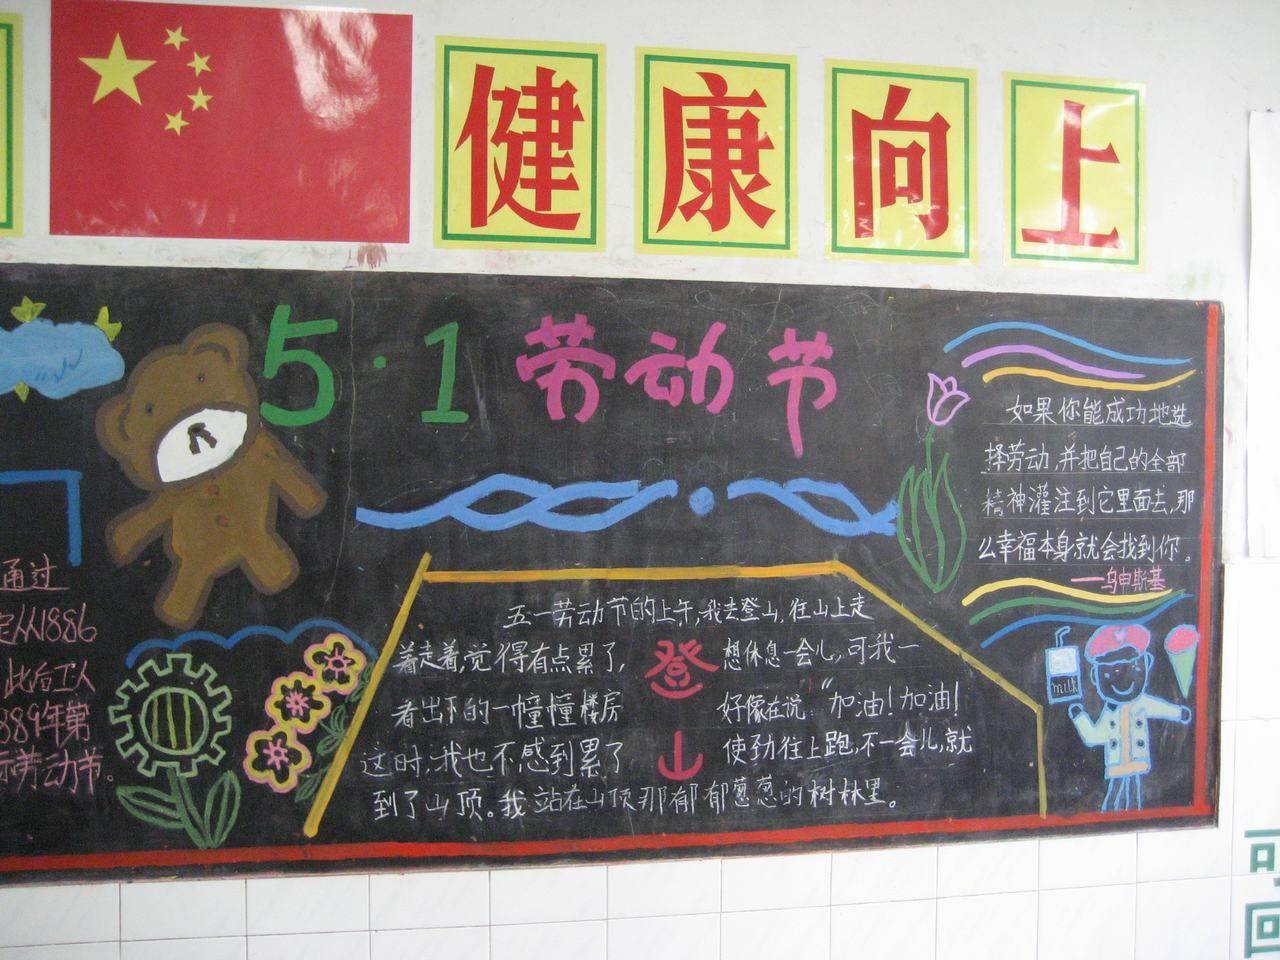 健康向上
5·1 劳动节
通过
定从1886
此后工人
889年第
际劳动节。
五一劳动节的上午,我去登山,往山上走
着走着,觉得有点累了,
想休息一会儿,可我一
看出下的一幢幢楼房
好像在说:“加油!加油!
这时,我也不感到累了
使劲往上跑,不一会儿,就
到了山顶。我站在山顶那郁郁葱葱的树林里。
登
山
如果你能成功地选
择劳动,并把自己的全部
精神灌注到它里面去,那
么幸福本身就会找到你。
——乌申斯基
milk
可
回